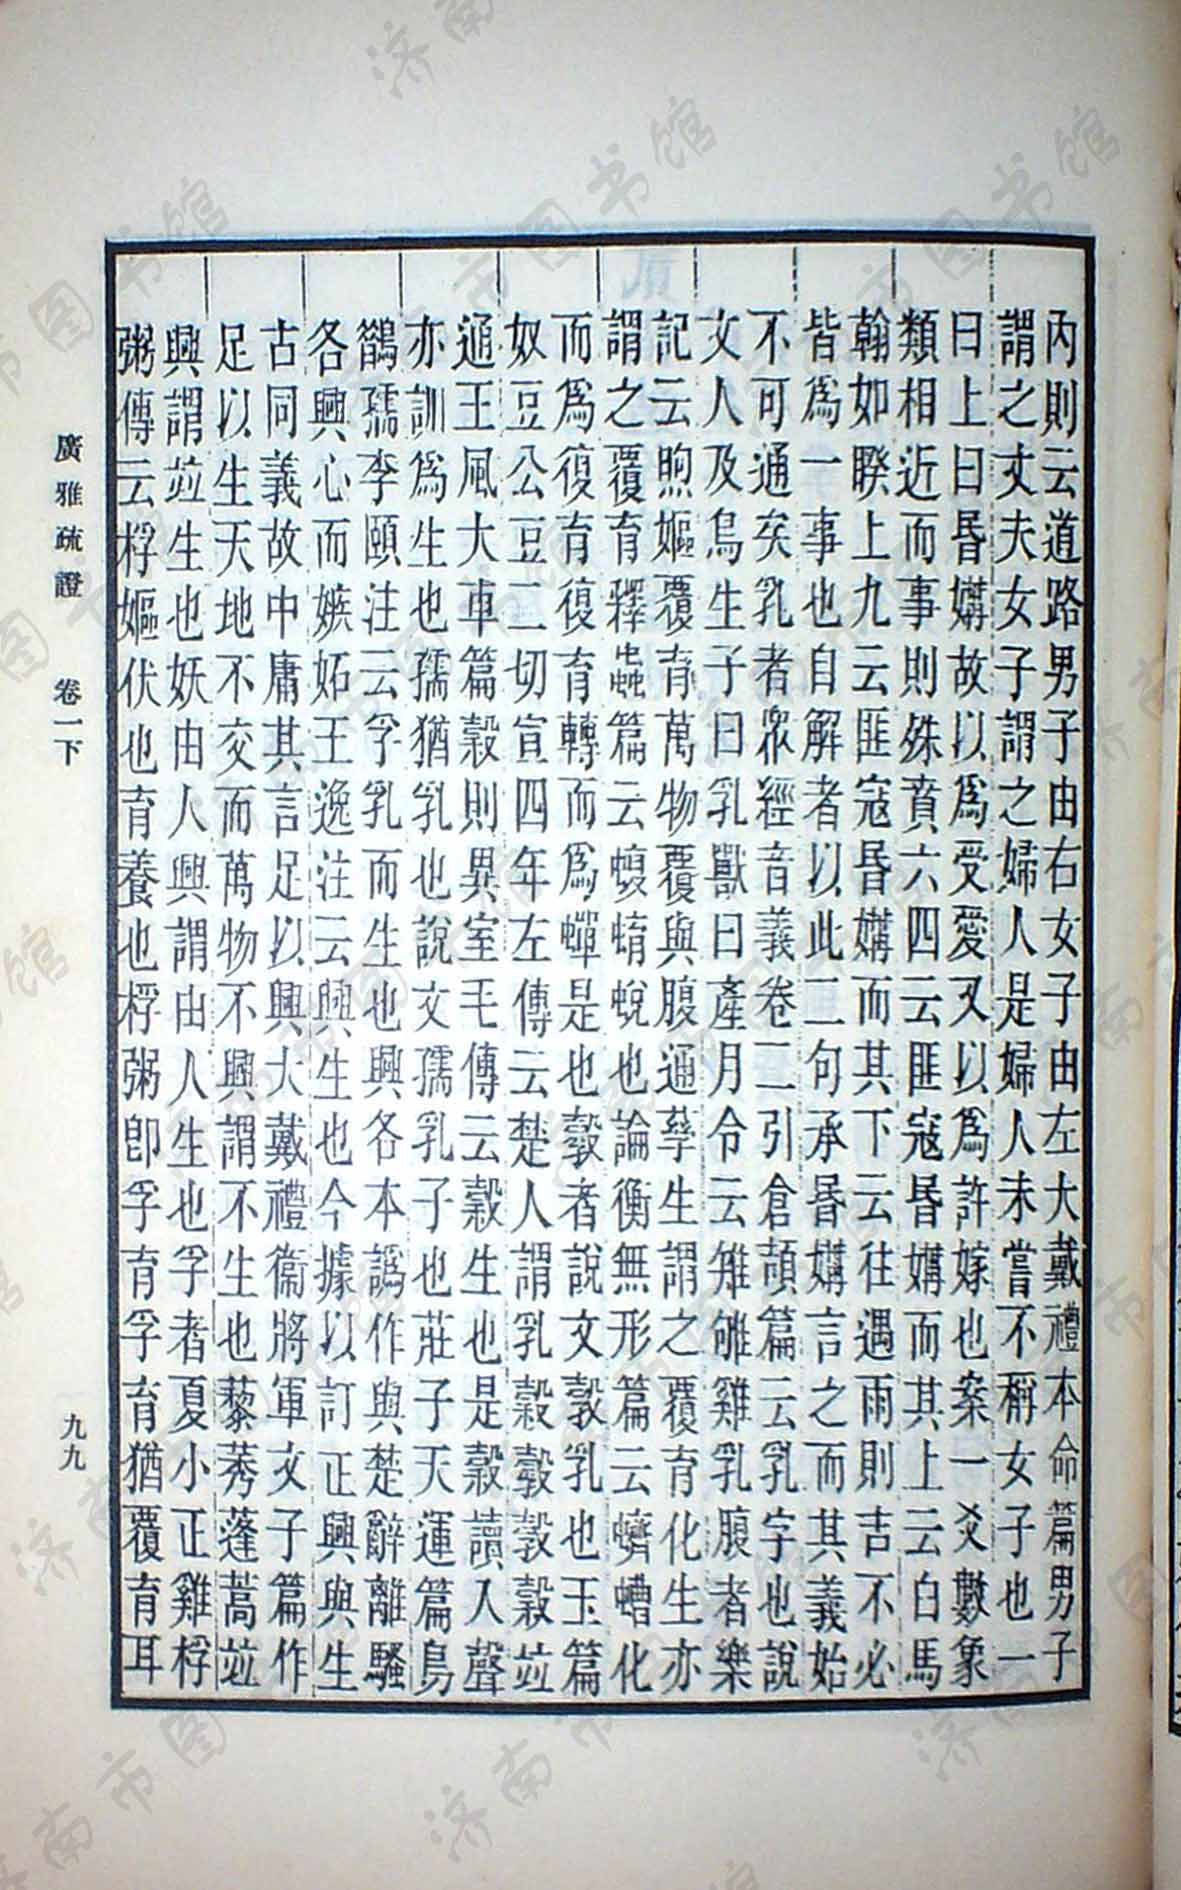 內則云道路男子由右女子由左大戴禮本命篇男子
謂之丈夫女子謂之婦人是婦人未嘗不稱女子也一
曰上曰昬媾故以為受愛又以為許嫁也案一爻數象
類相近而事則殊賁六四云匪寇昬媾而其上云白馬
翰如睽上九云匪寇昬媾而其下云往遇雨則吉不必
皆為一事也自解者以此二句承昬媾言之而其義始
不可通矣乳者眾經音義卷二引倉頡篇云乳字也說
文人及鳥生子曰乳獸曰產月令云雉雊雞乳腹者樂
記云煦嫗覆育萬物覆與腹通孳生謂之覆育化生亦
謂之覆育釋蟲篇云蝮蜟蛻也論衡無形篇云蠐螬化
而為復育復育轉而為蟬是也㝅者說文㝅乳也玉篇
奴豆公豆二切宣四年左傳云楚人謂乳穀㝅㝅穀竝
通王風大車篇穀則異室毛傳云穀生也是穀讀入聲
亦訓為生也孺猶乳也說文孺乳子也莊子天運篇鳥
鵲孺李頤注云孚乳而生也興各本譌作與楚辭離騷
各興心而嫉妬王逸注云興生也今據以訂正興與生
古同義故中庸其言足以興大戴禮衞將軍文子篇作
足以生天地不交而萬物不興謂不生也藜莠蓬蒿竝
興謂竝生也妖由人興謂由人生也孚者夏小正雞桴
粥傳云桴嫗伏也育養也桴粥卽孚育孚育猶覆育耳
廣雅疏證 卷一下
九九
济南市图书馆